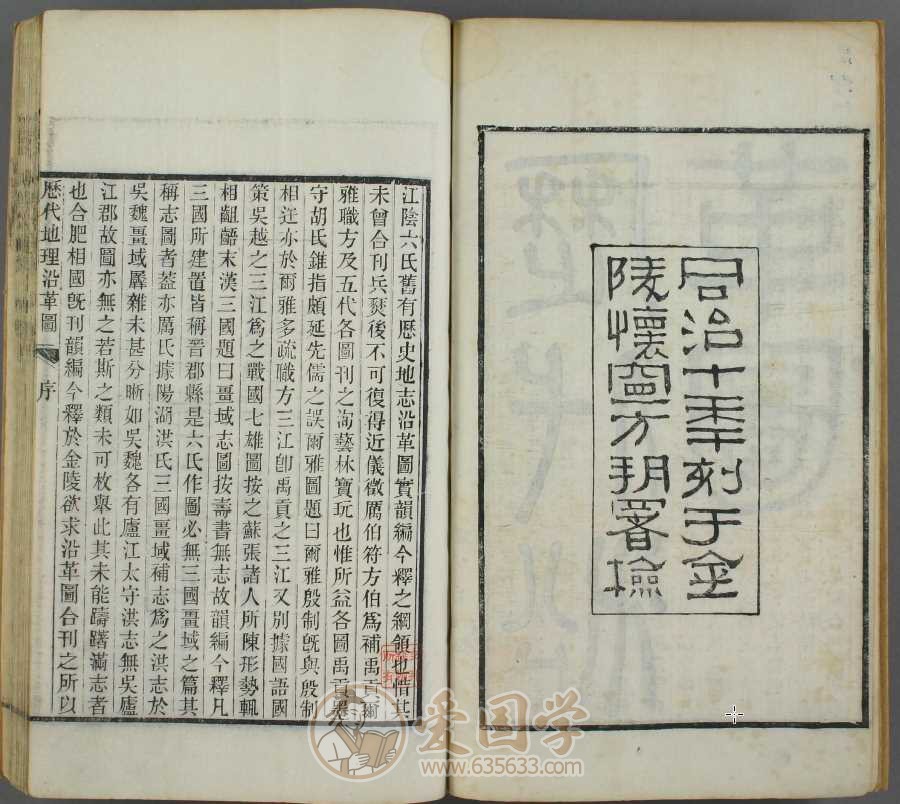 同治十年刻于金
陵懷甯方朔署檢
江陰六氏舊有歷史地志沿革圖實韻編今釋之綱領也惜其
未曾合刊兵燹後不可復得近儀徵厲伯符方伯為補禹貢爾
雅職方及五代各圖刊之洵藝林寶玩也惟所益各圖禹貢墨
守胡氏錐指頗延先儒之誤爾雅圖題曰爾雅殷制旣與殷制
相迕亦於爾雅多疏職方三江卽禹貢之三江又別據國語國
策吳越之三江為之戰國七雄圖按之蘇張諸人所陳形勢輒
相齟齬末漢三國題曰畺域志圖按壽書無志故韻編今釋凡
三國所建置皆稱晉郡縣是六氏作圖必無三國畺域之篇其
稱志圖者葢亦厲氏據陽湖洪氏三國畺域補志為之洪志於
吳魏畺域羼雜未甚分晰如吳魏各有廬江太守洪志無吳廬
江郡故圖亦無之若斯之類未可枚舉此其未能躊躇滿志者
也合肥相國旣刊韻編今釋於金陵欲求沿革圖合刊之所以
歷代地理沿革圖 序
愛国学
www.635633.com